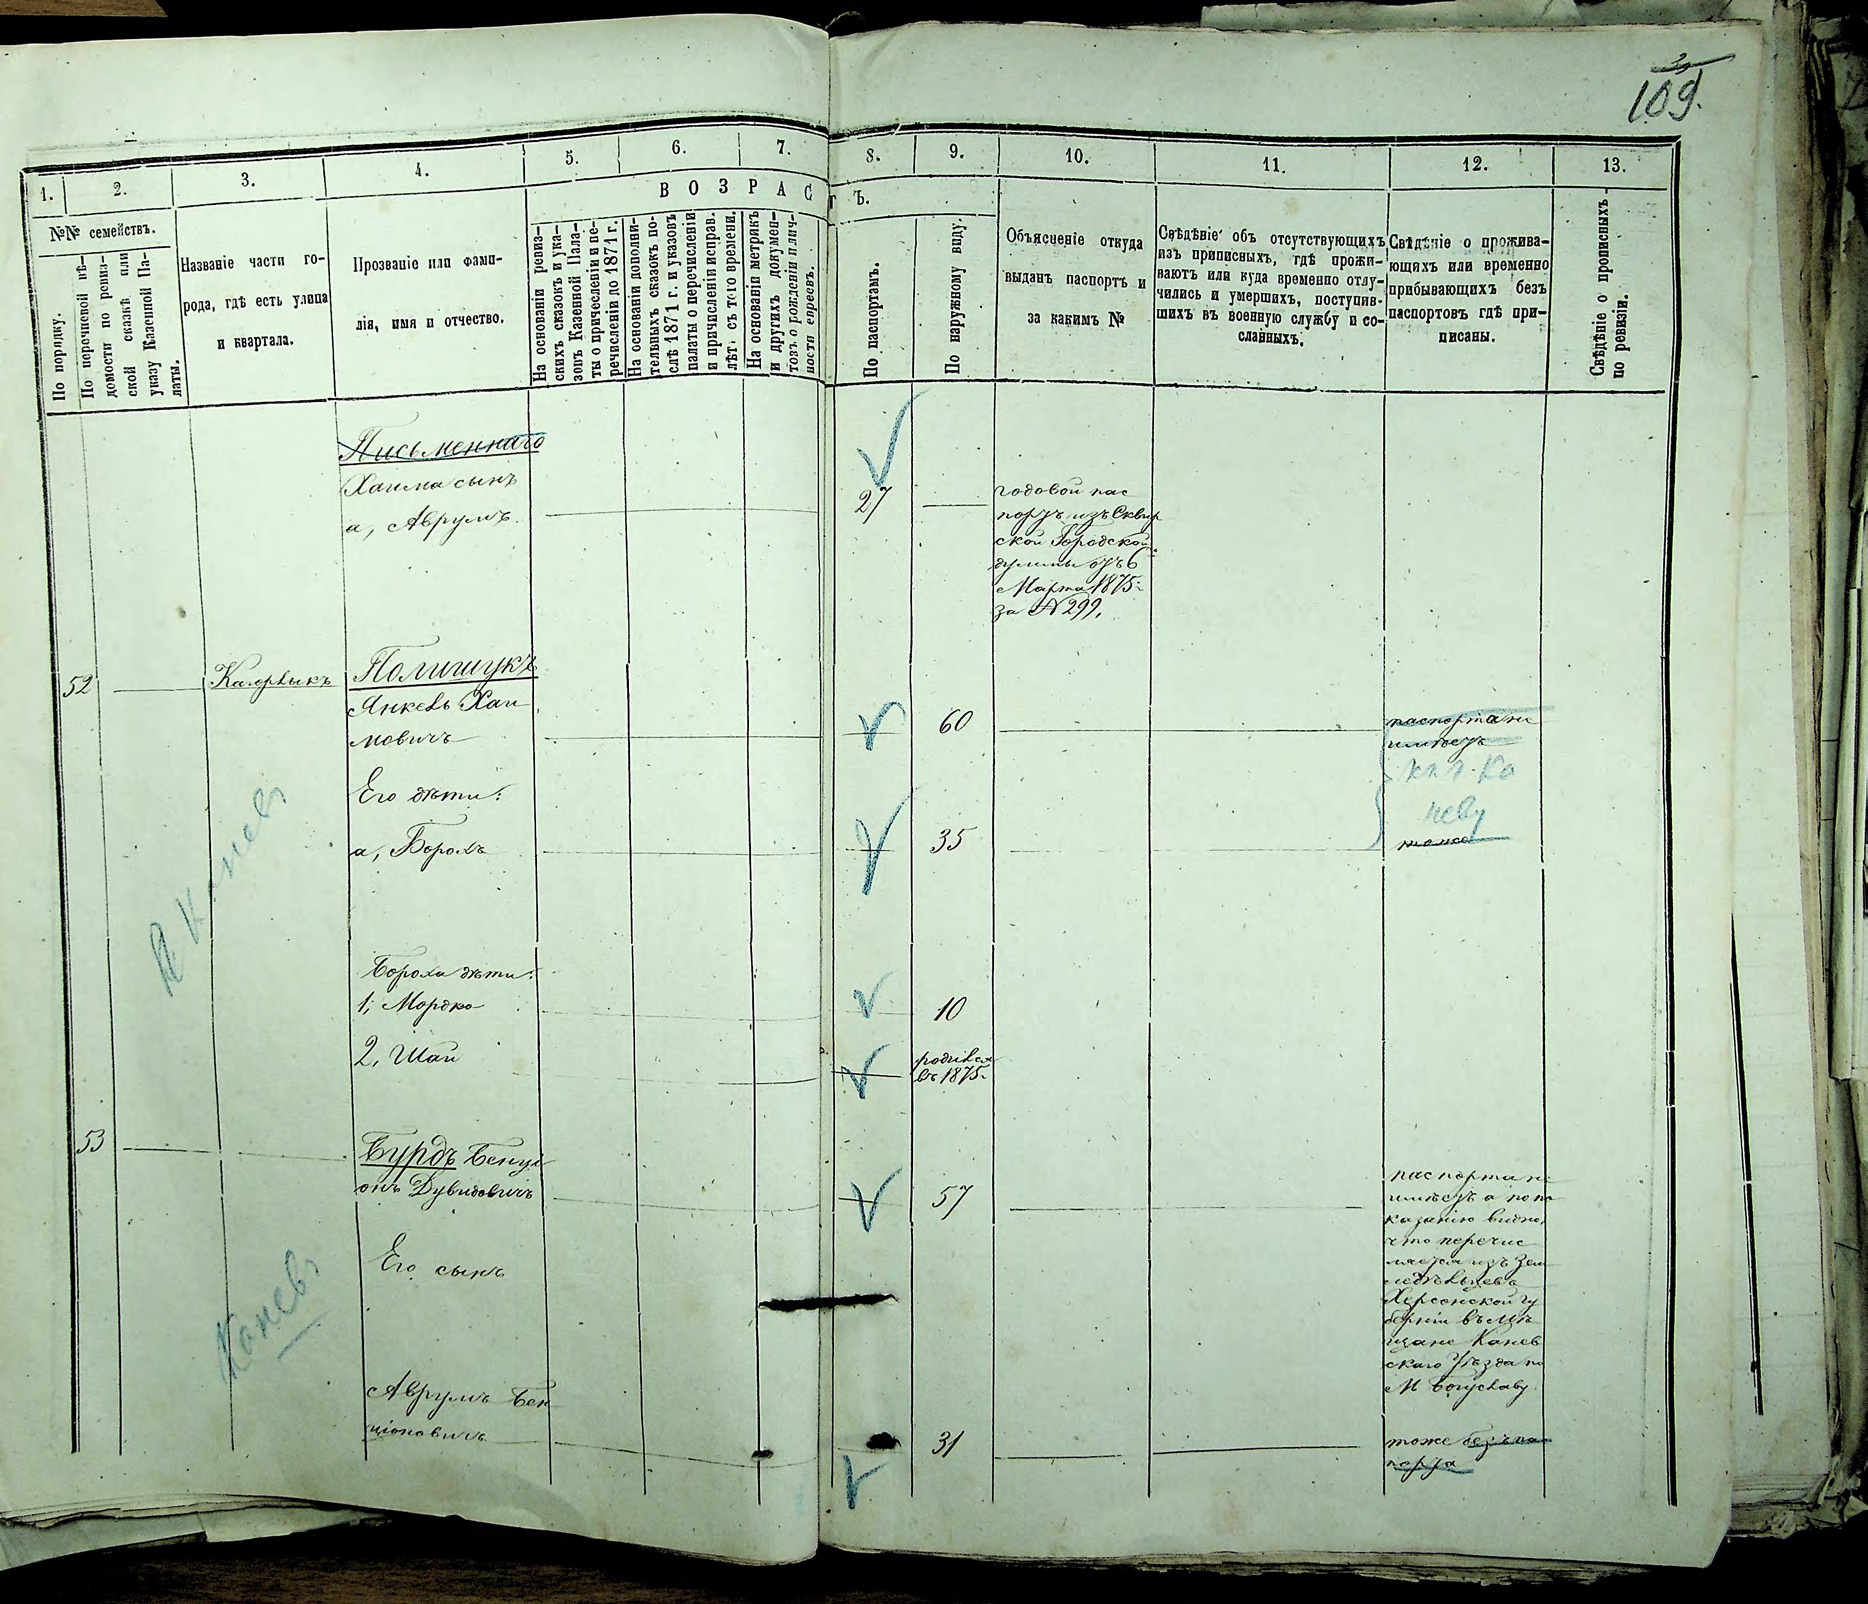 109.
1.
2.
3.
4.
5.
6.
7.
8.
9.
10.
11.
12.
13.
В О З Р А С Т Ъ.
№№ семействъ.
По порядку.
По перечневой вѣ-
домости по ревиз-
ской сказкѣ или
указу Казенной Па-
латы.
Названіе части го-
рода, гдѣ есть улица
и квартала.
Прозваніе или фами-
лія, имя и отчество.
На основаніи ревиз-
скихъ сказокъ и ука-
зовъ Казенной Пала-
ты о причесленіи и пе-
речисленіи до 1871 г.
На основаніи дополни-
тельныхъ сказокъ по-
слѣ 1871 г. и указовъ
палаты о перечисленіи
и причисленіи исправ.
лѣт. съ того времени.
На основаніи метрикъ
и другихъ докумен-
товъ о рожденіи лич-
ности евреевъ.
По паспортамъ.
По наружному виду.
Объясненіе откуда
выданъ паспортъ и
за какимъ №
Свѣдѣніе объ отсутствующихъ
изъ приписныхъ, гдѣ прожи-
ваютъ или куда временно отлу-
чились и умершихъ, поступив-
шихъ въ военную службу и со-
сланныхъ.
Свѣдѣніе о прожива-
ющихъ или временно
прибывающихъ безъ
паспортовъ гдѣ при-
писаны.
Свѣдѣніе о прописныхъ
по ревизіи.
Письменнаго
Хаима сынъ
а, Аврумъ
27
годовой пас
портъ изъ Сквир
ской Городской
думы отъ 6
Марта 1875
за № 299,
52
Полищукъ
Янкель Хаи
мовичъ
60
паспорта не
имѣетъ
Каневу
Его дѣти:
а, Борохъ
35
тоже
Канев
Бороха дѣти:
1, Мордко
10
2, Шаи
родился
въ 1875
53
Бурдъ Бенці
онъ Дувидовичъ
57
паспорта не
имѣетъ а по по
казанію видно,
что перечис
ляется изъ Зем
ледѣльцевъ
Херсонской гу
берніи въ мѣ
щане Канев
скаго Уѣзда по
М Богуславу
Его сынъ
Каневъ
Аврумъ Бен
ціоновичъ
31
тоже безъ па
порта